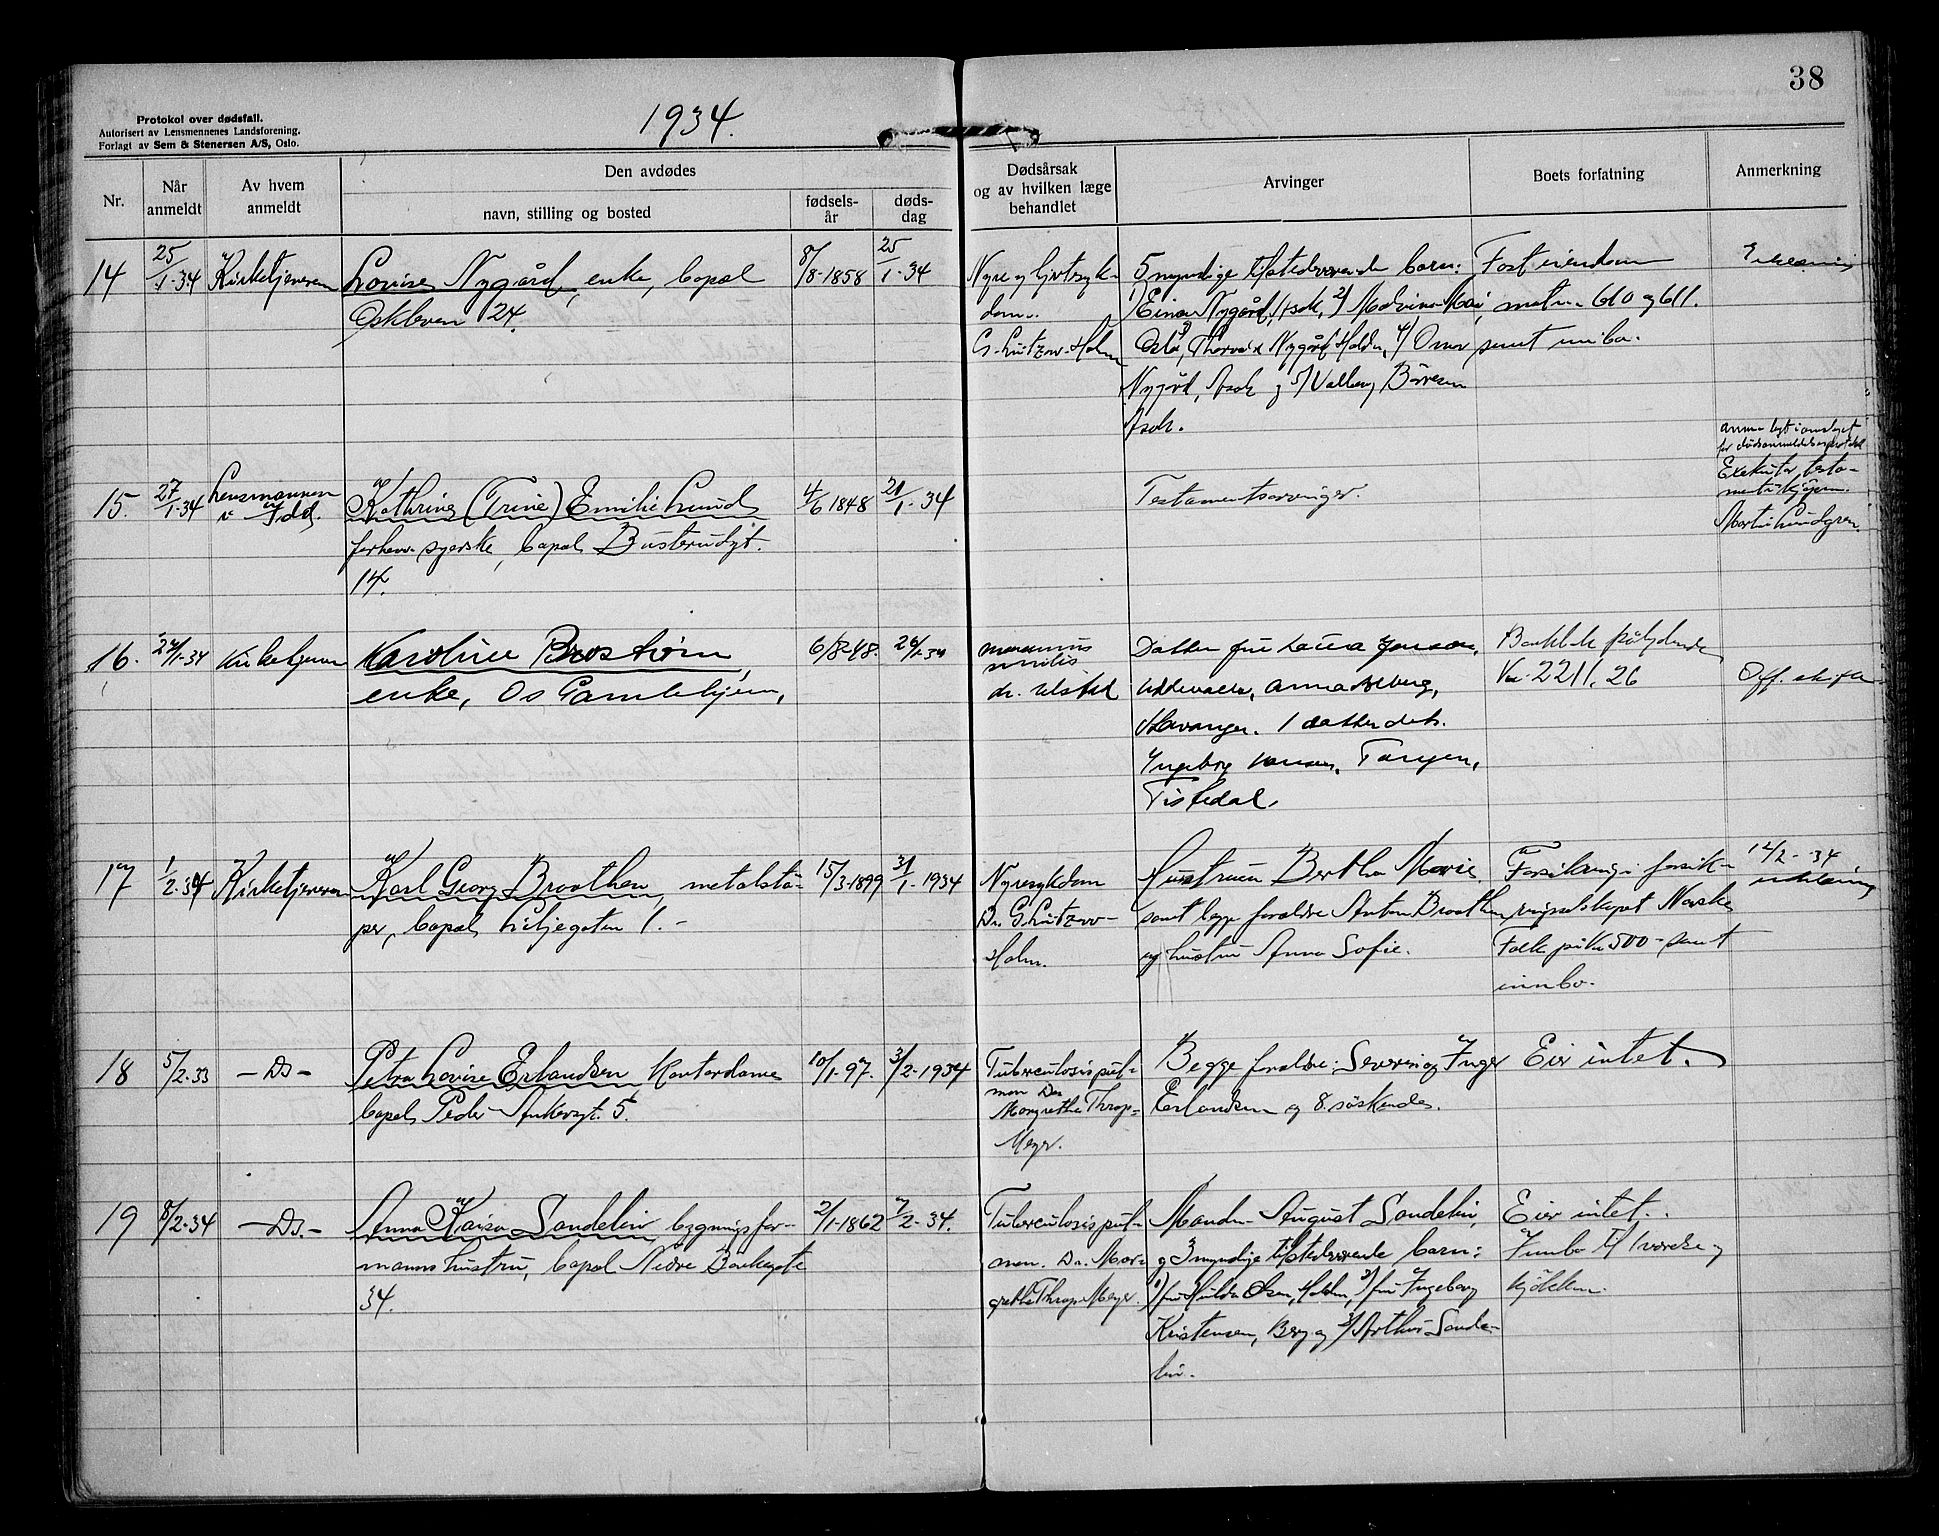 38
Protokol over dødsfall.
Autorisert av Lensmennenes Landsforening.
Forlagt av Sem & Stenersen A/S, Oslo.
1934.
Nr.
Når anmeldt
Av hvem anmeldt
Den avdødes
navn, stilling og bosted
fødsels-år
døds-dag
Dødsårsak og av hvilken læge behandlet
Arvinger
Boets forfatning
Anmerkning
14
25/1-34
Kirketjeneren
Lovise Nygård, enke, bopæl
Oskleven 24.
8/8-1858
25/1-34
Nyre og hjertesyk-
dom.
G. Lützow-Holm
5 myndige tilstedeværende barn:
1) Einar Nygård, Asak, 2)
Oslo, 3) Thorvald Nygård Halden, 4)
Nygård, Asak og 5) Valborg Børresen
Asak.
Fast eiendom
matr. 610 og 611.
samt innbo.
15.
27/1-34
Lensmannen
i Idd.
Kathrine (Trine) Emilie Lund
forhenv. syerske, bopæl Busterudgt.
14.
4/6 1848
21/1-34
Testamentsarvinger.
Eksekutor testa-
Martin Lundgren
16.
27/1-34
Kirketjener
Karoline Brostrøm,
enke, Os Gamlehjem,
6/8-48.
26/1-34
marasmus
senilis
dr.
Datter fru Laura Jonsson,
Uddevalla, Anna
Stavanger. 1 datter detr.
Ingeborg Hansen, Tangen,
Tistedal.
Bankbok pålydende
Kr. 2211,26
Off. skifte
17
1/2-34
Kirketjeneren
Karl Georg Braathen, metalstø-
per, bopæl Liljegaten 1.-
15/3-1899
31/1-1934
Nyresykdom
Dr. G. Lützow-
Holm.
Hustruen Bertha Marie
samt begge foreldre Anton Braathen
og hustru Anna Sofie.
Forsikring i forsik-
ringselskapet Norske
Folk på kr. 500- samt
innbo.
12/2-34
utskrivning
18
5/2-33
-Ds-
Petra Lovise Erlandsen Kontordame
bopæl Peder Ankersgt. 5.
10/1-97.
3/2-1934
Tuberculosis pul-
mon Dr.
Margrethe Throp-
Meyer.
Begge foreldre: Severin og Inger
Erlandsen og 8 søskende.
Eier intet.
19
8/2-34
-Ds.-
Anna Kaisa Sandelin, bygningsfor-
mannshustru, bopæl Nedre Bankegate
34.
2/1-1862
7/2-34.
Tuberculosis pul-
mon. Dr. Mar-
grethe Throp Meyer.
Manden August Sandelin,
og 3 myndige tilstedeværende barn:
1) fru Hulda Olsen, Halden, 2) fru Ingeborg
Kristensen, Berg og 3) Arthur Sande-
lin.
Eier intet.
Innbo til 1 værelse og
kjøkken.